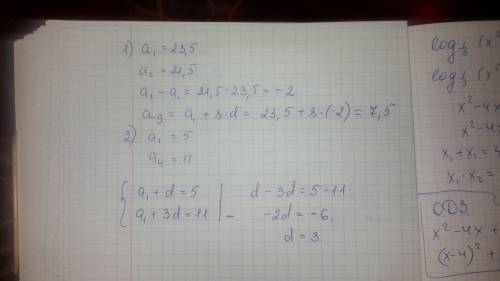 1) a₁ = 23,5
a₂ = 21,5
a₂ - a₁ = 21,5 - 23,5 = -2
a₉ = a₁ + 8·d = 23,5 + 8·(-2) = 7,5
2) a₂ = 5
a₄ = 11
{ a₁ + d = 5 | d - 3d = 5 - 11
a₁ + 3d = 11 | - -2d = -6.
d = 3
log 1/3 (x²
log 1/3 (x²
x² - 4x
x² - 4x
x₁ + x₂ = 4
x₁ · x₂ =
ОДЗ.
x² - 4x +
(x-4)² +